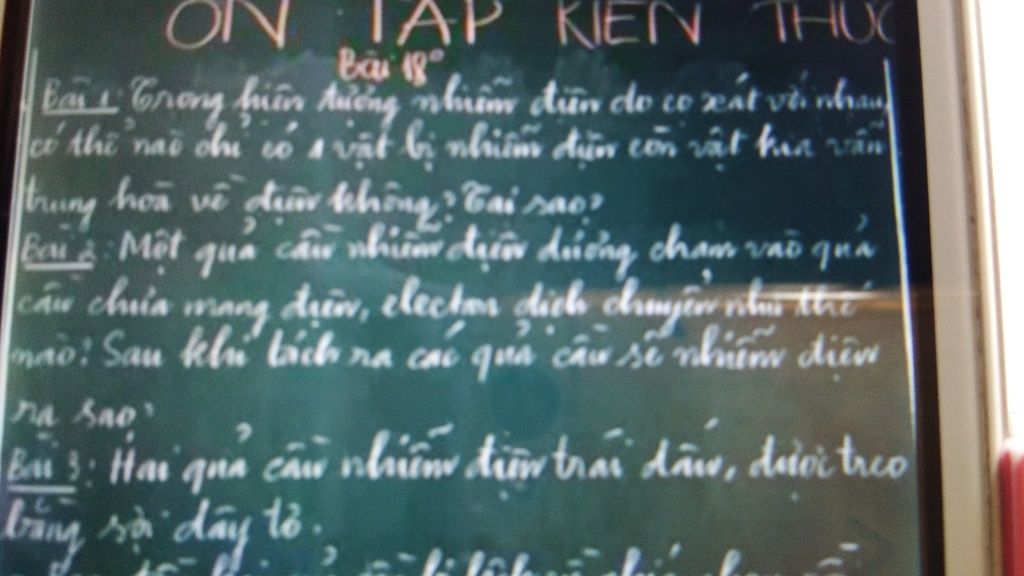 ÔN TẬP KIẾN THỨC
Bài 18
Bài 1: Trong hiện tượng nhiễm điện do cọ xát với nhau,
có thể nào chỉ có 1 vật bị nhiễm điện còn vật kia vẫn
trung hoà về điện không? Tại sao?
Bài 2: Một quả cầu nhiễm điện dương chạm vào quả
cầu chưa mang điện, electron dịch chuyển như thế
nào? Sau khi tách ra các quả cầu sẽ nhiễm điện
ra sao?
Bài 3: Hai quả cầu nhiễm điện trái dấu, được treo
bằng sợi dây tơ.